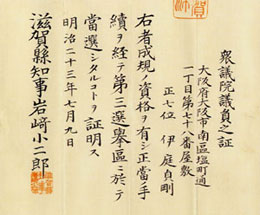 衆議院議員之証
大阪府大阪市南區塩町通
一丁目第七十八番屋敷
正七位 伊庭貞剛
右者成規ノ資格ヲ有シ正當ノ手
續ヲ経テ第三選擧區ニ於テ
當選シタルコトヲ証明ス
明治二十三年七月九日
滋賀縣知事岩﨑小二郎